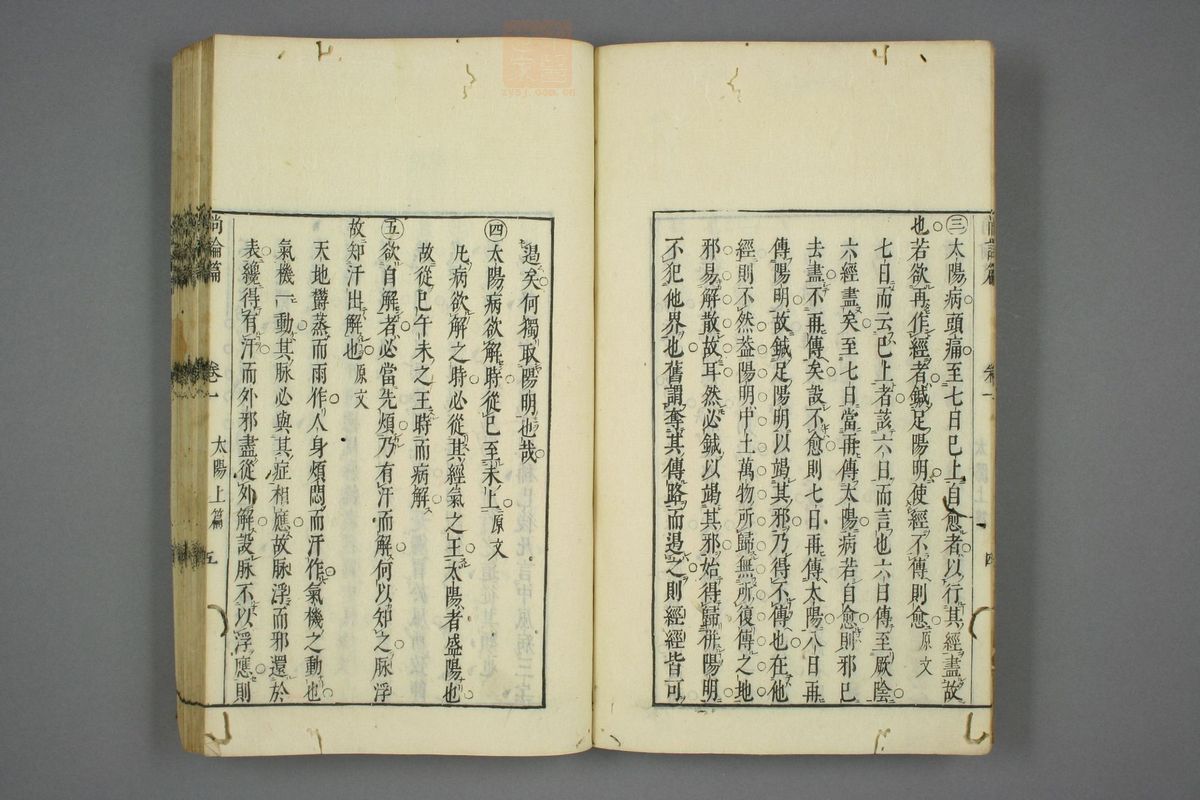 ㊂太陽病頭痛至七日已上自愈者以行其經盡故
也若欲再作經者鍼足陽明使經不傳則愈原文
七日而云已上者該六日而言也六日傳至厥陰
六經盡矣至七日當再傳太陽病若自愈則邪已
去盡不再傳矣設不愈則七日再傳太陽八日再
傳陽明故鍼足陽明以竭其邪乃得不傳也在他
經則不然葢陽明中土萬物所歸無所復傳之地
邪易解散故耳然必鍼以竭其邪始得歸併陽明
不犯他界也舊謂奪其傳路而遏之則經經皆可
遏矣何獨取陽明也哉
㊃太陽病欲解時從巳至未上原文
凡病欲解之時必從其經氣之王太陽者盛陽也
故從巳午未之王時而病解
㊄欲自解者必當先煩乃有汗而解何以知之脉浮
故知汗出解也原文
天地欝蒸而雨作人身煩悶而汗作氣機之動也
氣機一動其脉必與其症相應故脉浮而邪還於
表纔得有汗而外邪盡從外解設脉不以浮應則
尚論篇 卷一 太陽上篇 五